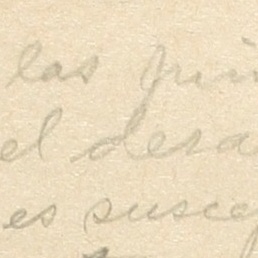 las prin
el desa
es suscep